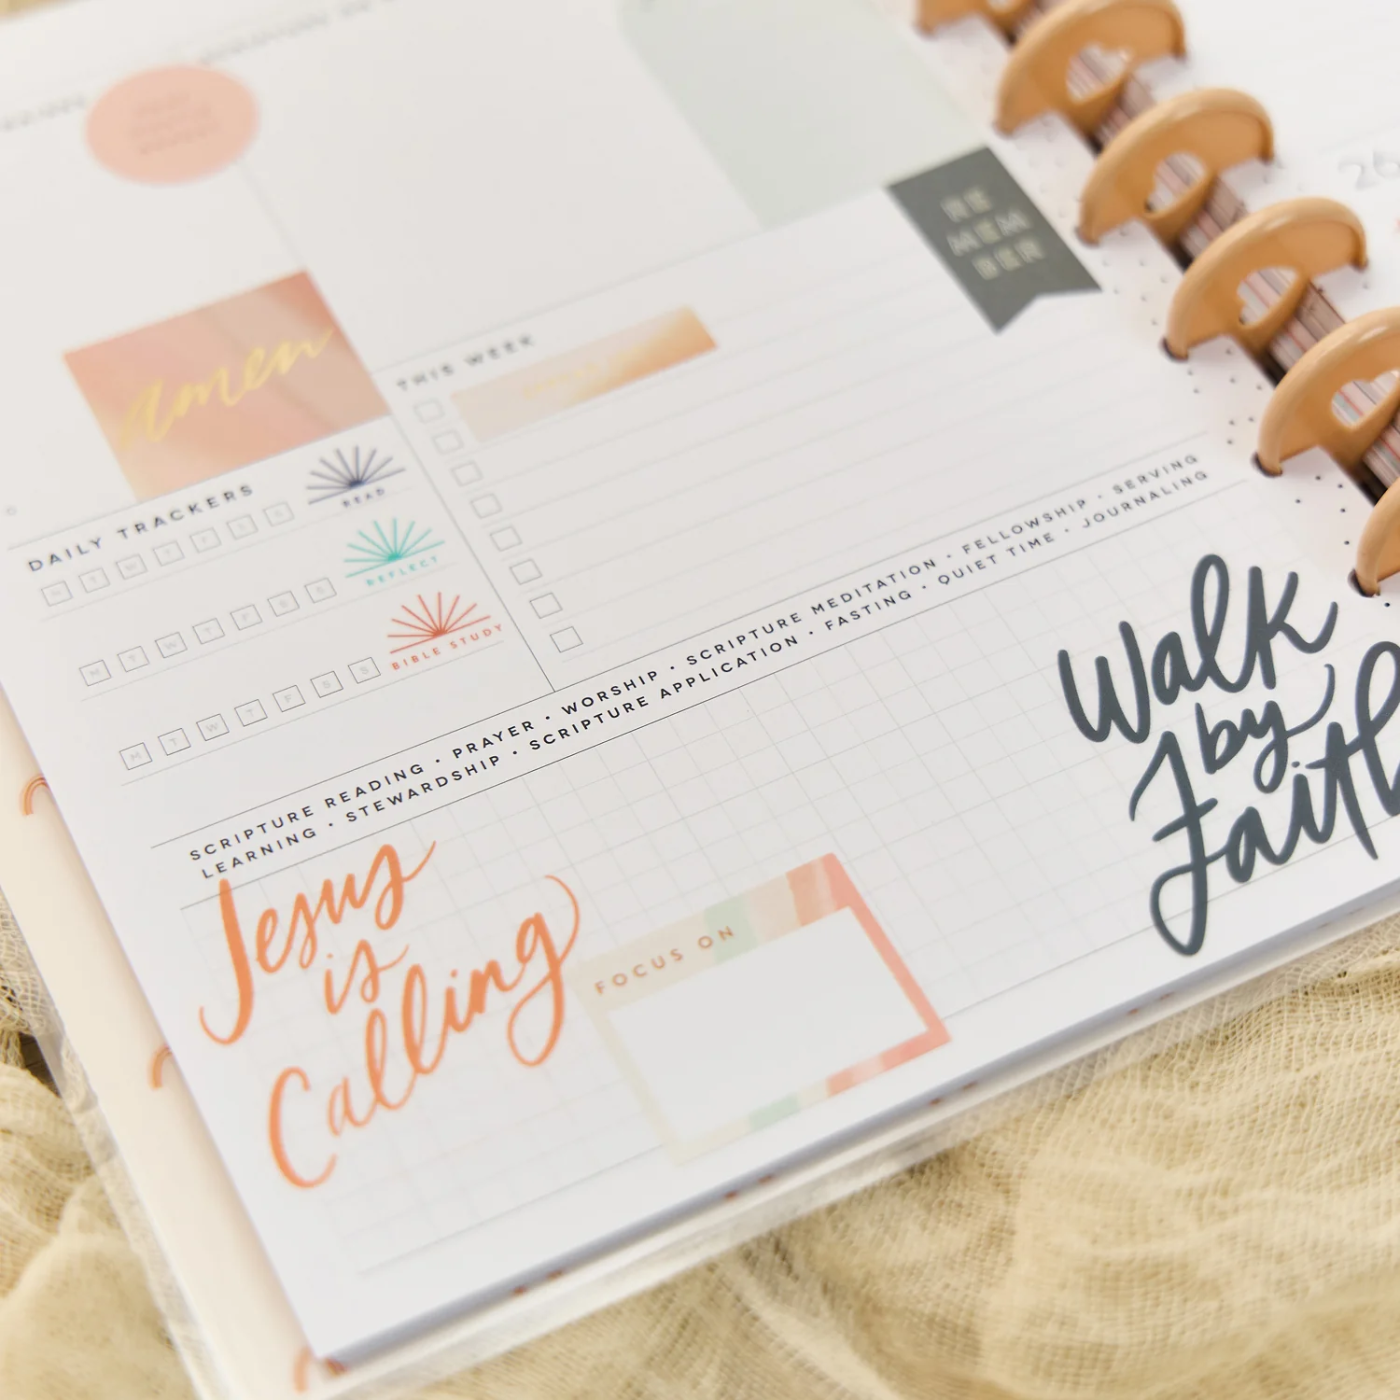 RE
MEM
BER
amen
THIS WEEK
DAILY TRACKERS
READ
M T W T F S S
REFLECT
M T W T F S S
BIBLE STUDY
M T W T F S S
SCRIPTURE READING • PRAYER • WORSHIP • SCRIPTURE MEDITATION • FELLOWSHIP • SERVING
LEARNING • STEWARDSHIP • SCRIPTURE APPLICATION • FASTING • QUIET TIME • JOURNALING
Walk
by
Faith
Jesus
is
Calling
FOCUS ON
26